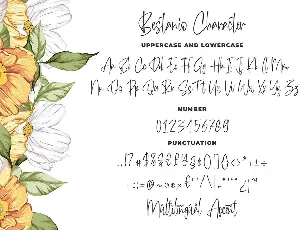 Bestanio Character
UPPERCASE AND LOWERCASE
Aa Bb Cc Dd Ee Ff Gg Hh Ii Jj Kk Ll Mm
Nn Oo Pp Qq Rr Ss Tt Uu Vv Ww Xx Yy Zz
NUMBER
0123456789
PUNCTUATION
Multilingual Accent